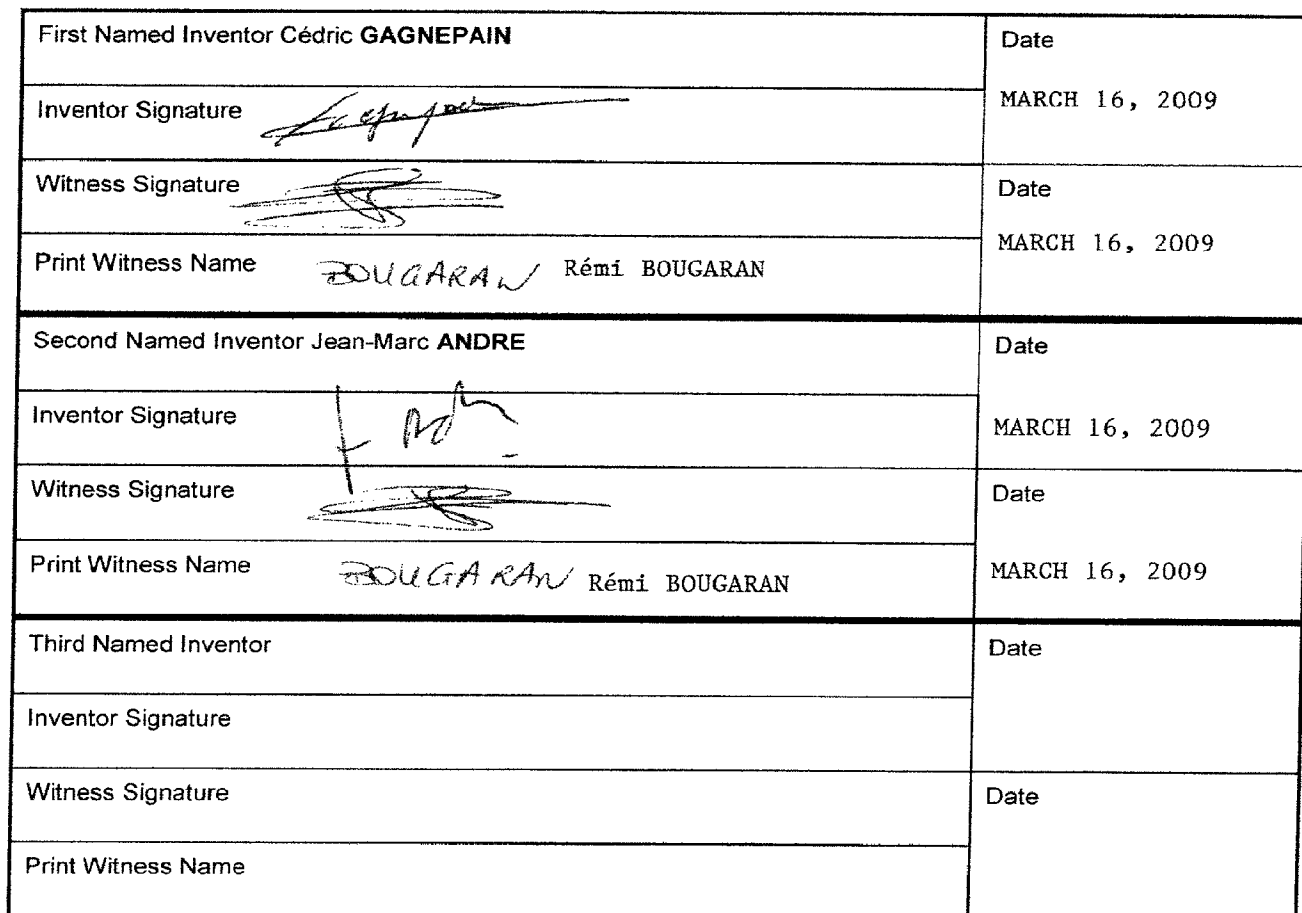 First Named Inventor Cédric GAGNEPAIN
Date
Inventor Signature
MARCH 16, 2009
Witness Signature
Date
MARCH 16, 2009
Print Witness Name BOUGARAN Rémi BOUGARAN
Second Named Inventor Jean-Marc ANDRE
Date
Inventor Signature
MARCH 16, 2009
Witness Signature
Date
Print Witness Name BOUGARAN Rémi BOUGARAN
MARCH 16, 2009
Third Named Inventor
Date
Inventor Signature
Witness Signature
Date
Print Witness Name